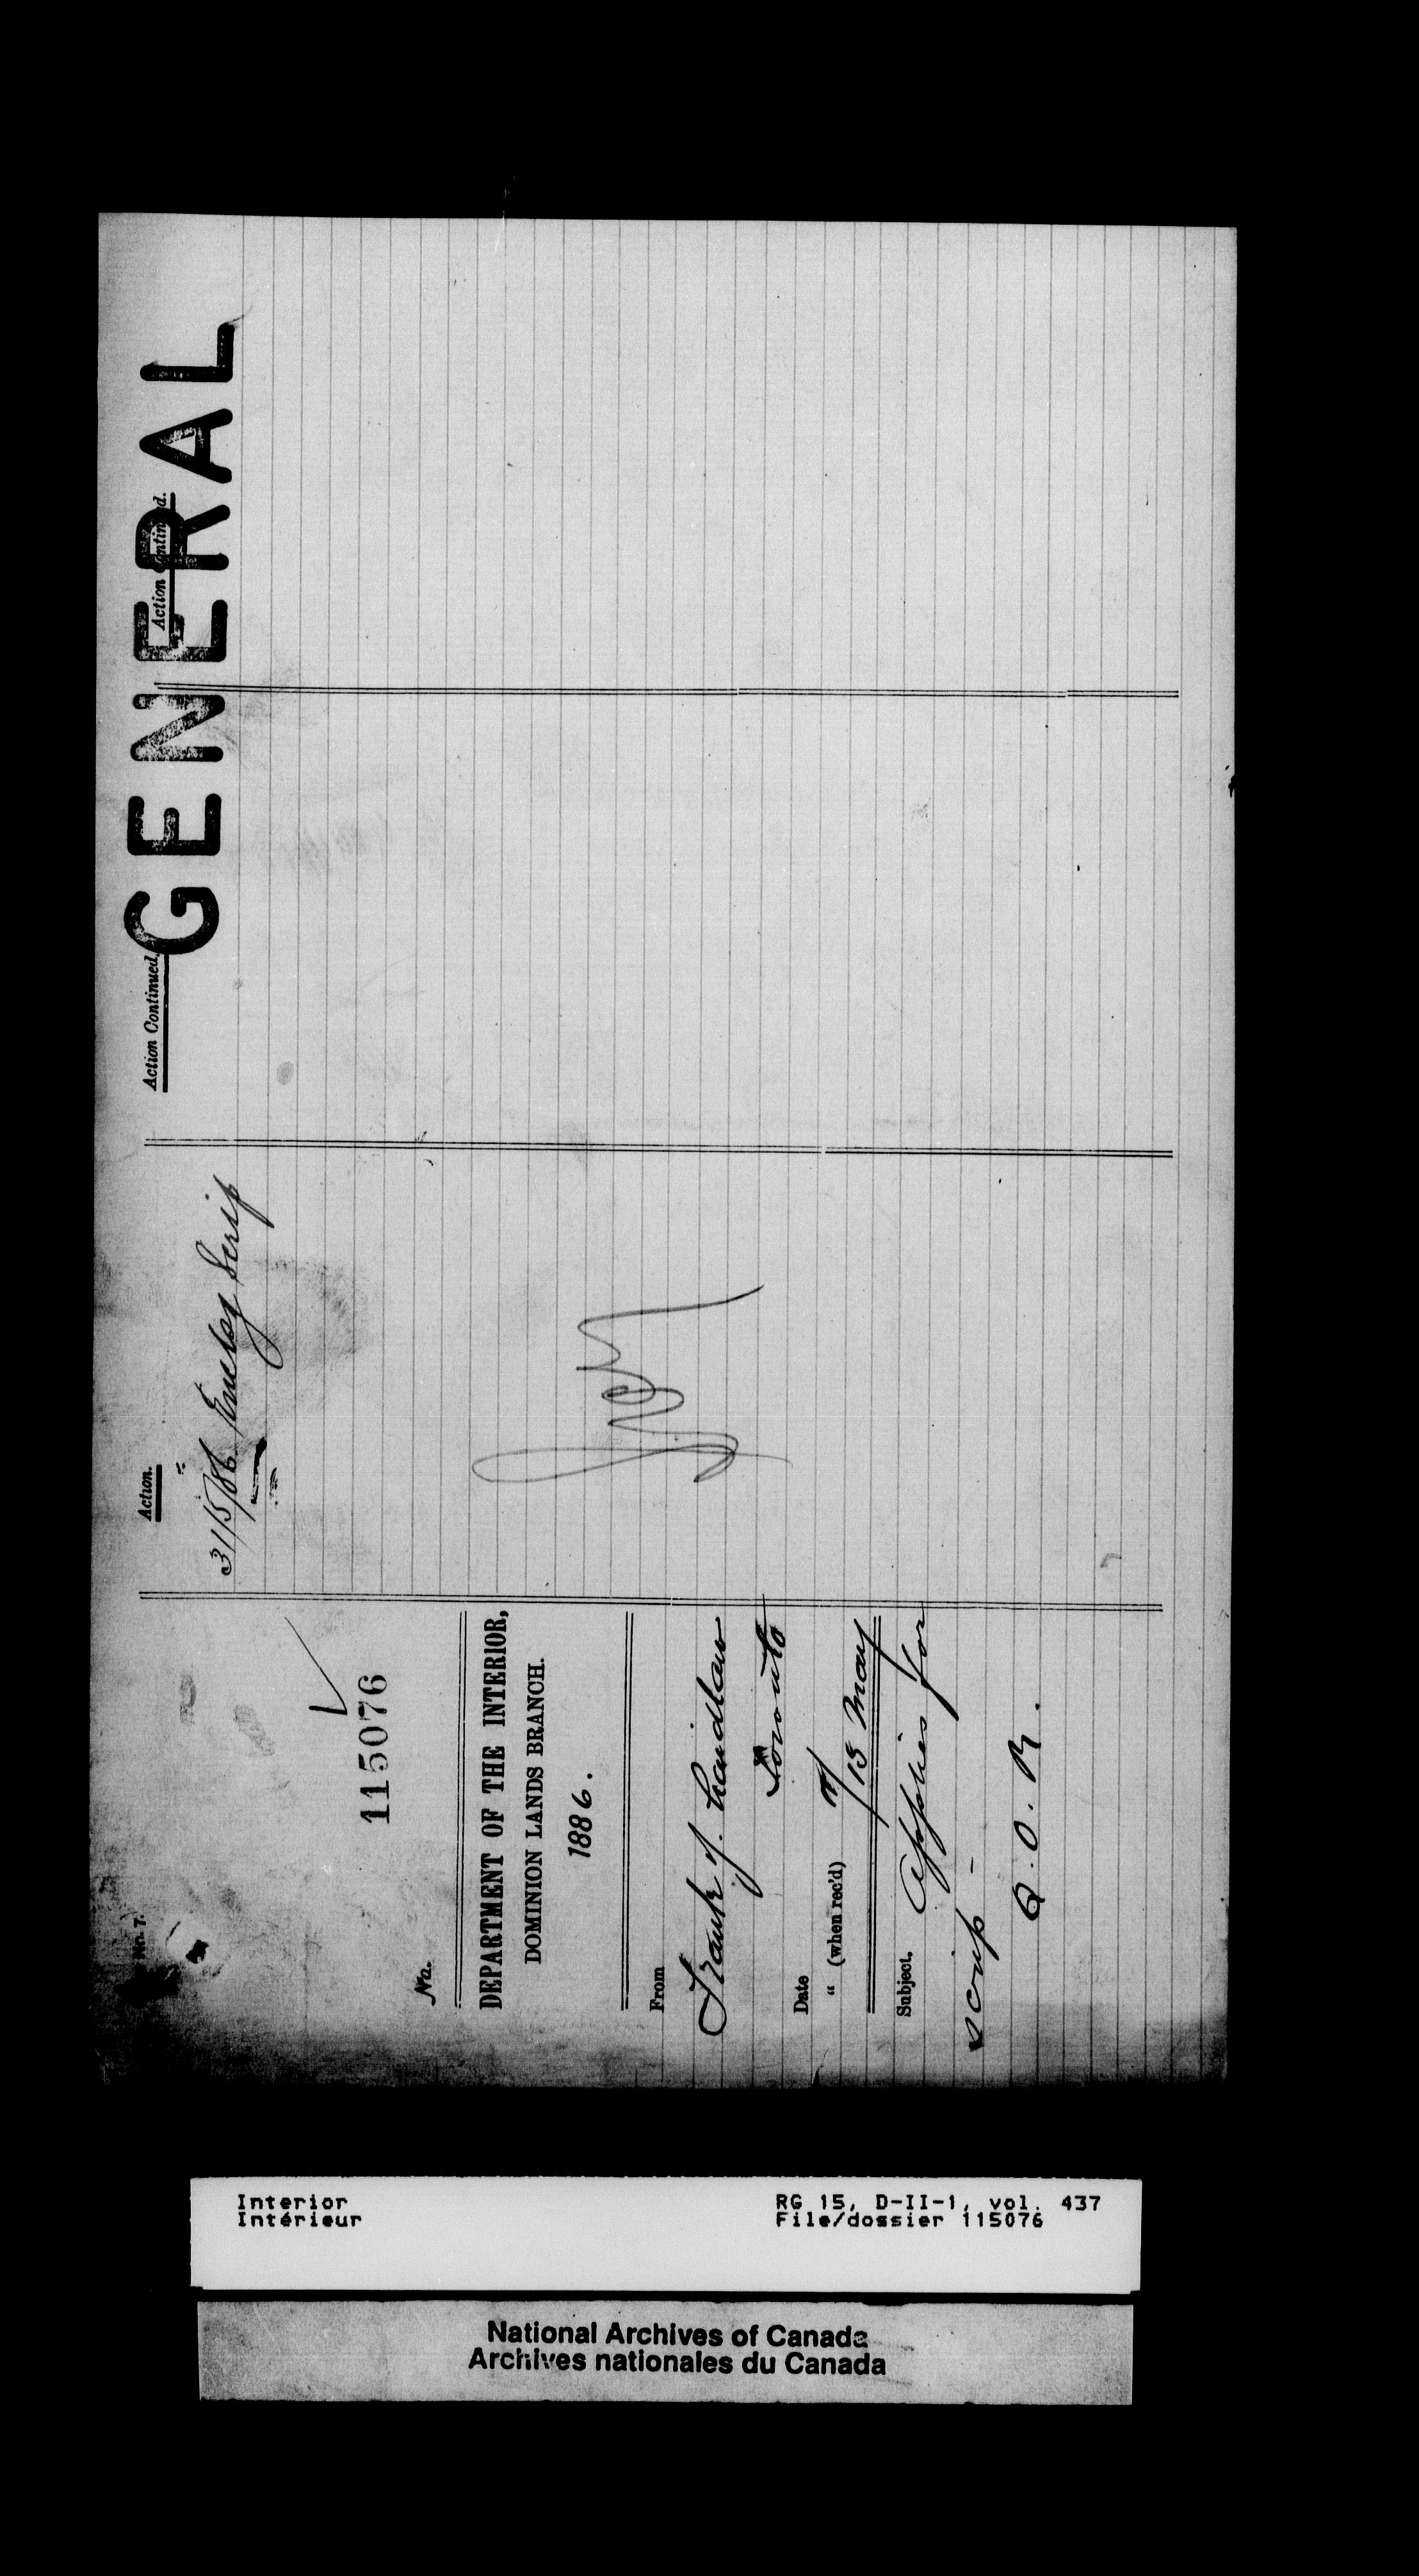 GENERAL
No. 7.
115076
No.
DEPARTMENT OF THE INTERIOR,
DOMINION LANDS BRANCH.
1886.
From
Frank J. Laidlaw
Toronto
Date
" (when rec'd) 15 May
Subject. Applies for
scrip –
Q. O. R.
Action.
31/5/86 Enclsg Scrip
Action Continued.
Action Continued.
Interior
Intérieur
RG 15, D-II-1, vol. 437
File/dossier 115076
National Archives of Canada
Archives nationales du Canada